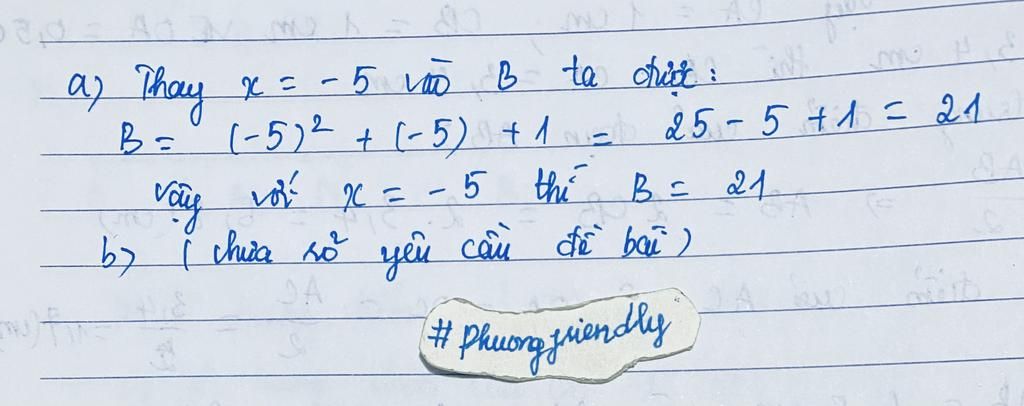 a) Thay x = -5 vào B ta được:
B = (-5)² + (-5) + 1 = 25 - 5 + 1 = 21
Vậy với x = -5 thì B = 21
b) (chưa rõ yêu cầu đề bài)
#Phuongfriendly